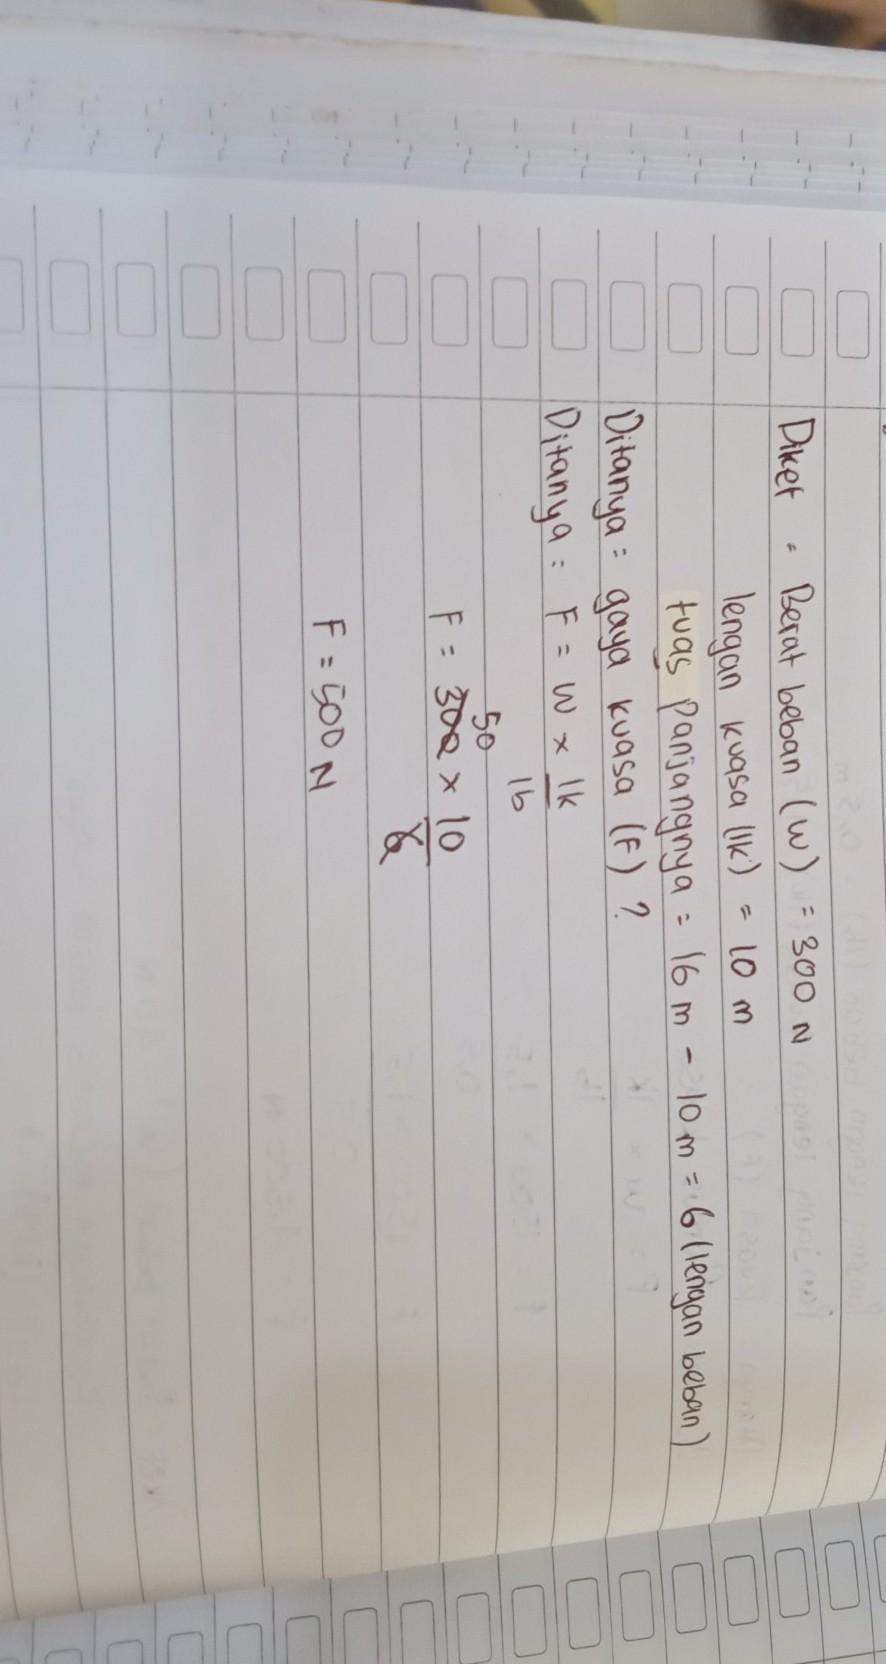 Diket = Berat beban (W) = 300 N
lengan kuasa (lk) = 10 m
tuas panjangnya = 16 m - 10 m = 6 (lengan beban)
Ditanya = gaya kuasa (F) ?
Ditanya = F = W x lk
lb
50
F = 300 x 10
6
F = 500 N